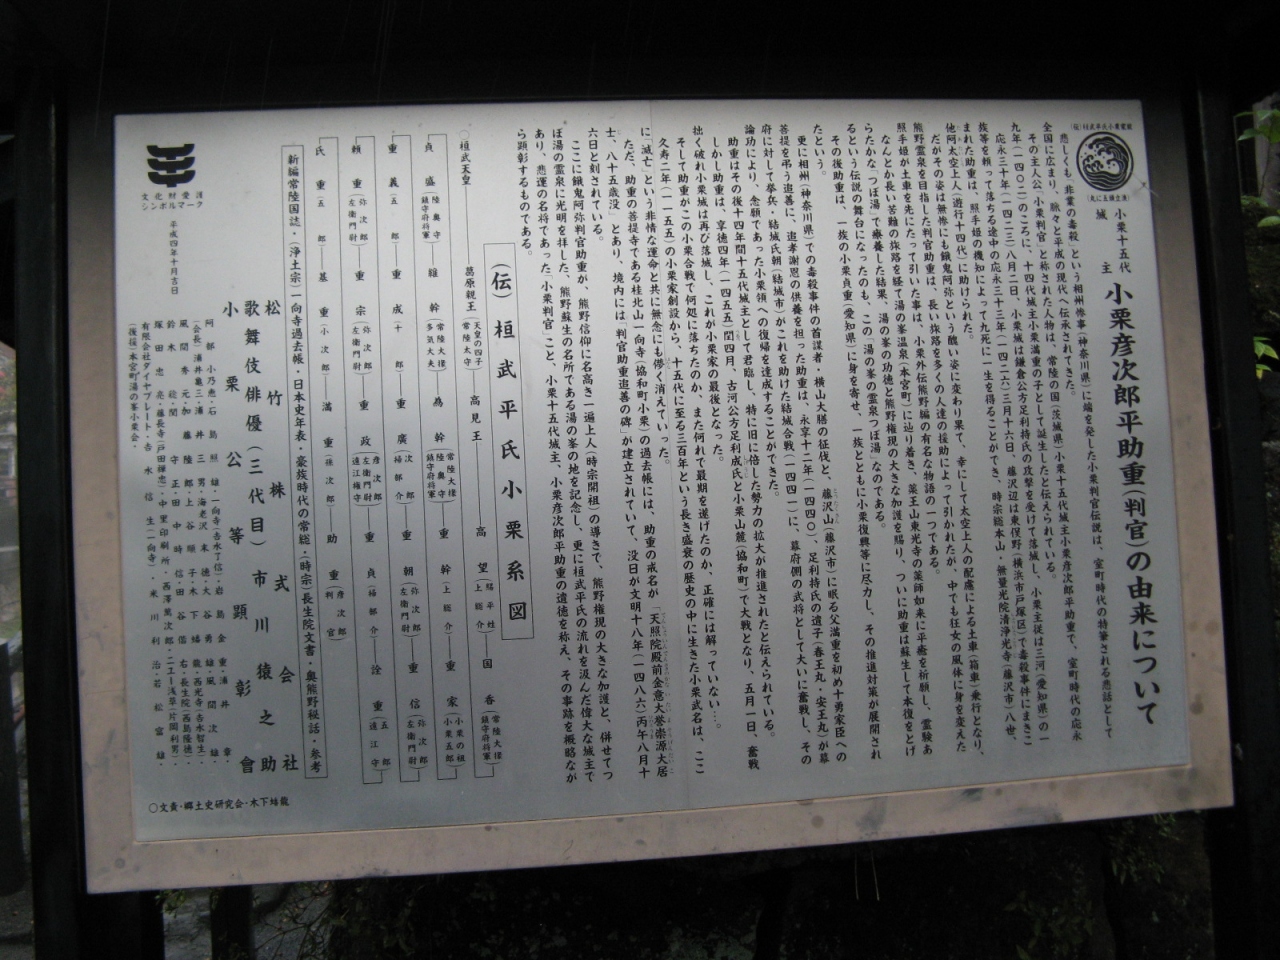 小栗十五代
城主
小栗彦次郎平助重(判官)の由来について
悲しくも、非業の毒殺という相州惨事(神奈川県)に端を発した小栗判官伝説は、室町時代の特筆される悲話として
全国に広まり、脈々と平成の現代へ伝承されてきた。
その主人公、「小栗判官」と称された人物は、常陸の国(茨城県)小栗十五代城主小栗彦次郎平助重で、室町時代の応永
九年(一四〇二)のころに、十四代城主小栗満重の子として誕生したと伝えられている。
応永三十年(一四二三)八月二日、小栗城は鎌倉公方足利持氏の攻撃を受けて落城し、小栗主従は三河(愛知県)の一
族等を頼って落ちる途中の応永三十三年(一四二六)三月十六日、藤沢辺は東俣野(横浜市戸塚区)で毒殺事件にまきこ
まれた助重は、照手姫の機知によって九死に一生を得ることができ、時宗総本山・無量光院清浄光寺(藤沢市)八世、
他阿太空上人(遊行十四代)に助けられた。
だがその姿は無惨にも餓鬼阿弥という醜い姿に変わり果て、幸にして太空上人の配慮による土車(箱車)乗行となり、
熊野霊泉を目指した判官助重は、長い旅路を多くの人達の援助によって引かれたが、中でも狂女の風体に身を変えた
照手姫が土車を先にたって引いた事は、小栗外伝熊野編の有名な物語の一つである。
なんとか長い苦難の旅路を経て湯の峯温泉(本宮町)に辿り着き、薬王山東光寺の薬師如来に平癒を祈願し、霊験あ
らたかな「つぼ湯」で療養した結果、湯の峯の功徳と熊野権現の大きな加護を賜り、ついに助重は蘇生して本復をとげ
るという伝説の舞台になったのも、この「湯の峯の霊泉つぼ湯」なのである。
その後助重は、一族の小栗貞重(愛知県)に身を寄せ、一族とともに小栗復興等に尽力し、その推進対策が展開され
たという。
更に相州(神奈川県)での毒殺事件の首謀者・横山大膳の征伐と、藤沢山(藤沢市)に眠る父満重を初め十勇家臣への
菩提を弔う追善に、追孝謝恩の供養を担った助重は、永享十二年(一四四〇)、足利持氏の遺子(春王丸・安王丸)が幕
府に対して挙兵・結城氏朝(結城市)がこれを助けた結城合戦(一四四一)に、幕府側の武将として大いに奮戦し、その
論功により、念願であった小栗領への復帰を達成することができた。
助重はその後十四年間十五代城主として君臨し、特に旧に倍した勢力の拡大が推進されたと伝えられている。
しかし助重は、享徳四年(一四五五)閏四月、古河公方足利成氏と小栗山麓(協和町)で大戦となり、五月一日、奮戦
拙く破れ小栗城は再び落城し、これが小栗家の最後となった。
そして助重がこの小栗合戦で何処に落ちたのか、また何れで最期を遂げたのか、正確には解っていない…。
久寿二年(一一五五)の小栗家創設から、十五代に至る三百年という長き盛衰の歴史の中に生きた小栗武名は、ここ
に滅亡」という非情な運命と共に無念にも儚く消えていった。
ただ、助重の菩提寺である桂北山一向寺(協和町小栗)の過去帳には、助重の戒名が「天照院殿前金意大誉崇源大居
士、八十五歳没」とあり、境内には「判官助重追善の碑」が建立されていて、没日が文明十八年(一四八六)丙午八月十
六日と刻されている。
ここに餓鬼阿弥判官助重が、熊野信仰に名高き一遍上人(時宗開祖)の導きで、熊野権現の大きな加護と、併せてつ
ぼ湯の霊泉に光明を拝した、熊野蘇生の名所である湯の峯の地を記念し、更に桓武平氏の流れを汲んだ偉大な城主で
あり、悲運の名将であった「小栗判官」こと、小栗十五代城主、小栗彦次郎平助重の遺徳を称え、その事跡を概略なが
ら顕彰するものである。
(伝)桓武平氏小栗系図
〇桓武天皇 葛原親王(天皇の四子 常陸太守) 高見王 高望(賜平姓 上総介) 国香(常陸大掾 鎮守府将軍)
貞盛(陸奥守 鎮守府将軍) 維幹(常陸大掾 多気大夫) 為幹(常陸大掾 陸奥守 鎮守府将軍) 重幹(上総介) 重家(小栗の祖 小栗五郎)
重義(五郎) 重成(十郎) 重廣(次郎 掃部介) 重朝(弥次郎 左衛門尉) 重信(弥次郎 左衛門尉)
頼重(弥次郎 左衛門尉) 重宗(弥次郎 左衛門尉) 重政(彦次郎 左衛門尉 遠江権守) 重貞(掃部介) 詮重(五郎 遠江守)
氏重(五郎) 基重(小次郎) 満重(孫次郎) 助重(彦次郎 判官)
新編常陸国誌・(浄土宗)一向寺過去帳・日本史年表・豪族時代の常総・(時宗)長生院文書・奥熊野秘話・参考
松竹株式会社
歌舞伎俳優(三代目)市川猿之助
小栗公等顕彰會
文化財愛護
シンボルマーク
平成四年十月吉日
〇文責・郷土史研究会・木下